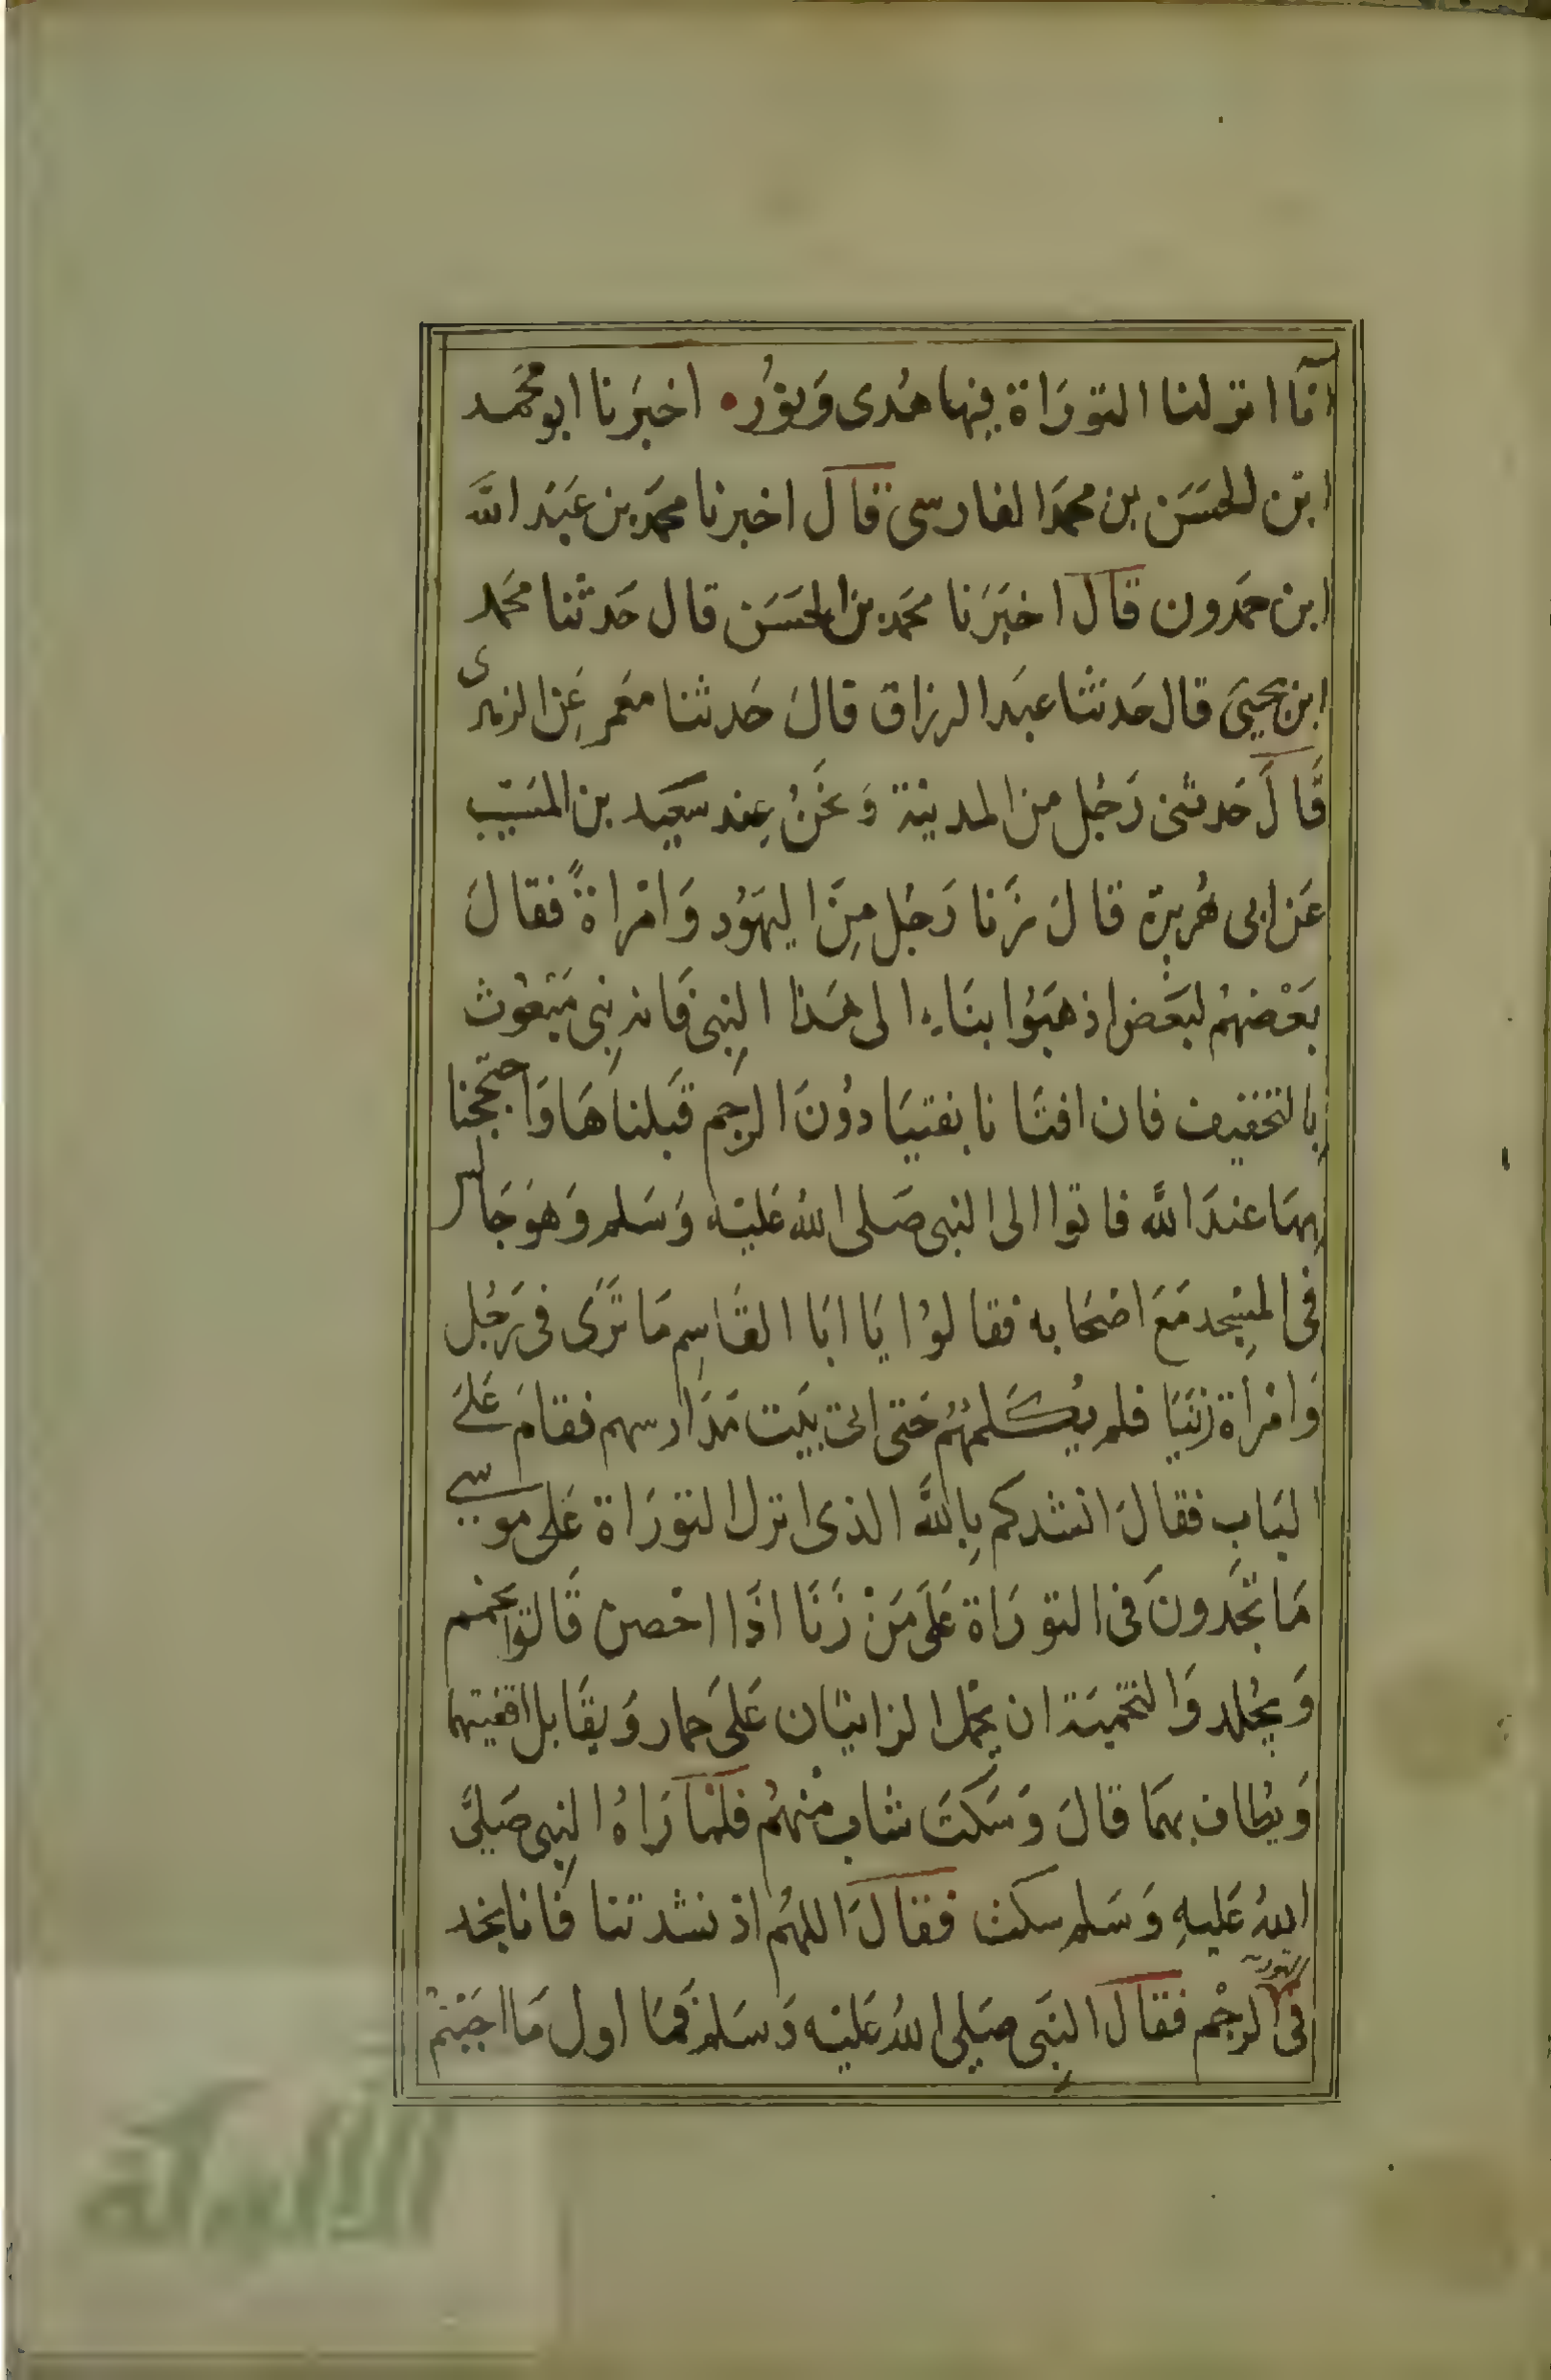 انا انزلنا التوراة فيها هُدى وَنورُ اخبرَنا ابو محَمد
ابن الحسَن بن محمدَ الفارسى قال اخبرنا محمد بن عَبْد الله
ابن حمدون قال اخبَرَنا محَمد بن الحسَن قال حَدثنا محَمد
ابن يحيىَ قال حَدثنا عبَد الرزاق قال حَدثنا معَمر عَن الزهرى
قَالَ حَدثنى رَجُل من المدينة وَنحَنُ عِند سَعيد بن المسَيب
عَن ابى هُريرة قالَ زَنا رَجُل مِنَ اليهَوُد وَامْراةً فقالَ
بَعْضهُم لبَعَض اذهَبوُا بنَا الى هَذا النِبى فَانه نِبى مَبْعوُث
بالتخفيف فان افتَانا بفتيَا دوُنَ الرجم قَبلناهَا وَاحتججنا
بهَا عندَ الله فاتوا الى النبى صَلى اللهُ عَليْه وَسَلم وَهوَ جَالس
فى المسِجد مَعَ اصْحَابه فقالوُا يَا ابَا القَاسِم مَا تَرَى فى رَجُل
وَامْرأة زنَيَا فلم يُكَلمهُم حَتى اتى بيَت مَدَارسهم فقامَ عَلىَ
لبَاب فقالَ انشدكم بِاللهَّ الذى انزل التوَراة عَلى موسى
مَا تَجدَونَ فى التورَاة عَلىَ مَنْ زَنَا اذَا احْصن قَالوا يحَمم
وَيجُلد وَالتحَميَة ان يحْمل الزانيَان عَلىَ حمار وَيقَابل اقفيتهما
وَيطُاف بهمَا قالَ وَسَكتَ شاب منْهُم فلمْا رَاهُ النِبى صَلىَّ
اللهُ عَليهِ وَسَلم سكت فقالَ اللهُم اذ نشدتنا فَانا نجد
فى التوراة الرجْم فقال النِبَى صَلى اللهُ عَليْه وَسَلم فَمَا اول مَا اجَبْتمْ
الألوكة